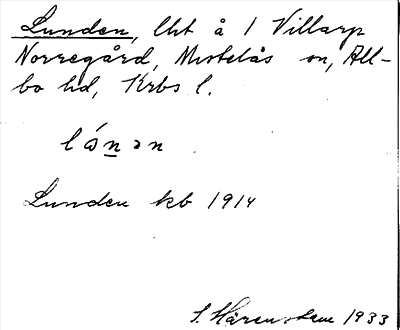 Lunden, lht å 1 Villarp
Norregård, Mistelås sn, All-
bo hd, Krbs l.
lón̲ən
Lunden kb 1914
S. Hårenstam 1933